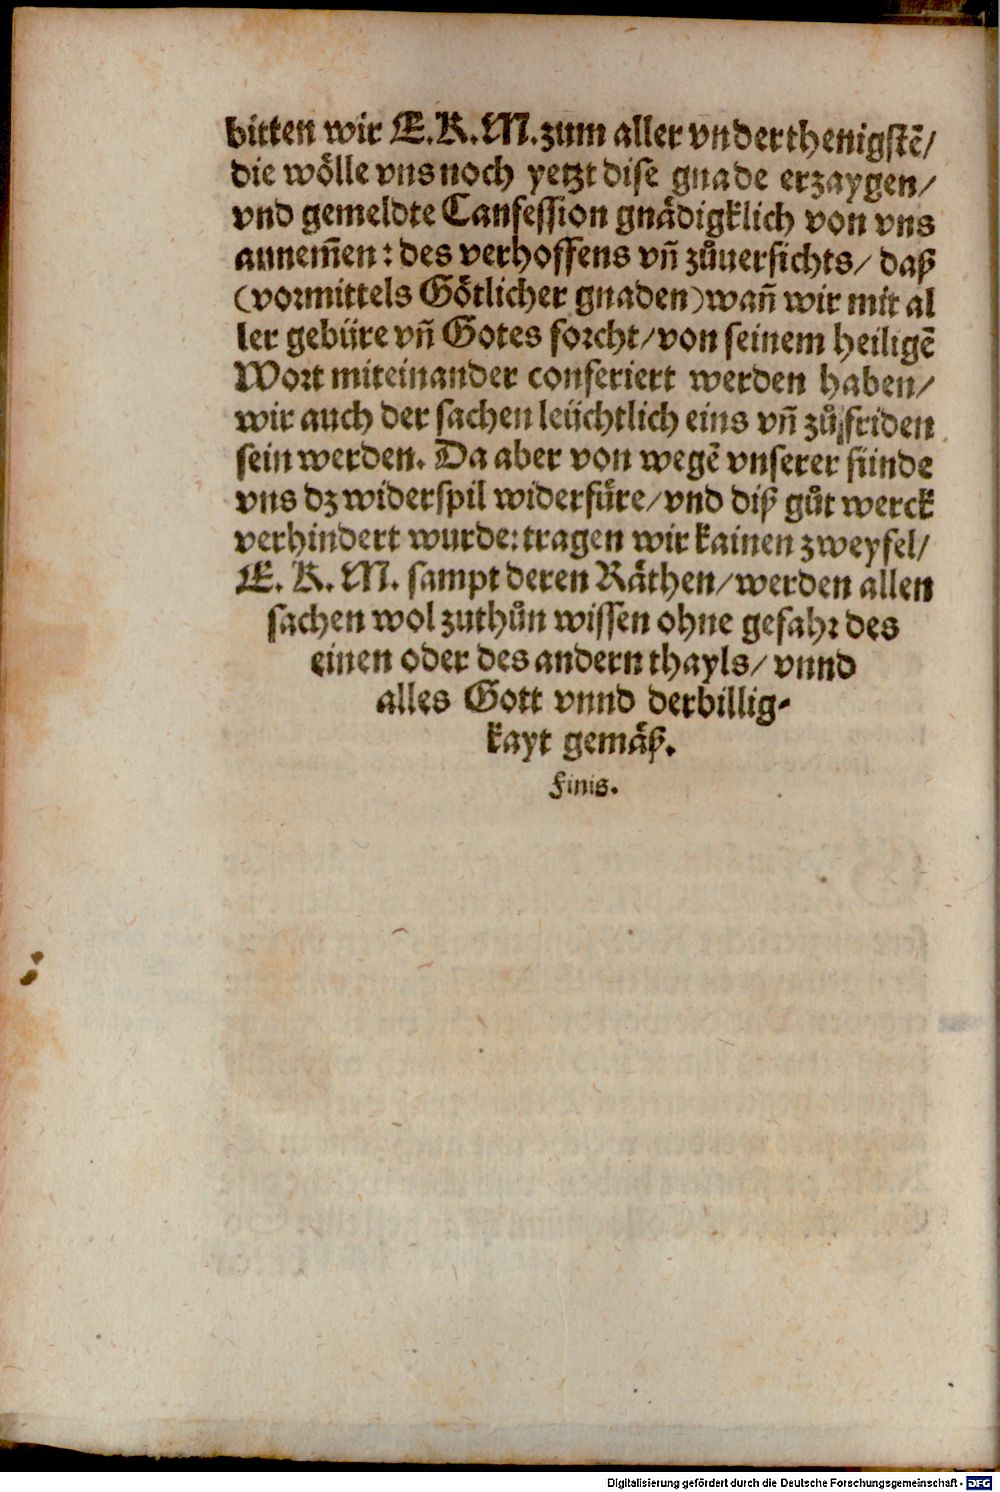 bitten wir E.K.M. zum aller vnderthenigstẽ/
die wölle vns noch yetzt dise gnade erzaygen/
vnd gemeldte Canfession gnådigklich von vns
annem̃en: des verhoffens vñ zůuersichts/ daß
(vormittels Götlicher gnaden) wañ wir mit al
ler gebüre vñ Gotes forcht/ von seinem heiligẽ
Wort miteinander conferiert werden haben/
wir auch der sachen leüchtlich eins vñ zů friden
sein werden. Da aber von wegẽ vnserer sünde
vns dz widerspil widerfüre/ vnd diß gůt werck
verhindert wurde: tragen wir kainen zweyfel/
E. K. M. sampt deren Räthen/ werden allen
sachen wol zuthůn wissen ohne gefahr des
einen oder des andern thayls/ vnnd
alles Gott vnnd der billig-
kayt gemåß.
Finis.
Digitalisierung gefördert durch die Deutsche Forschungsgemeinschaft - DFG